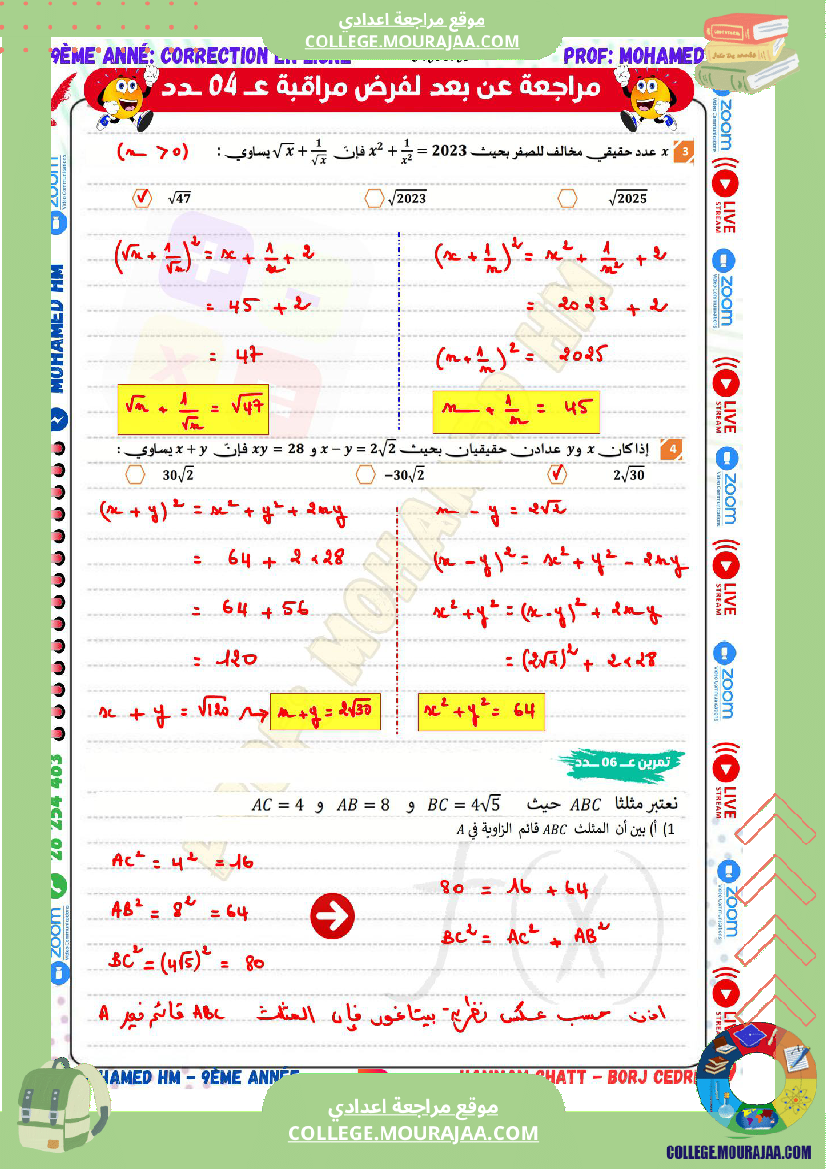 موقع مراجعة اعدادي
COLLEGE.MOURAJAA.COM
9ÈME ANNÉ: CORRECTION EN LIGNE
PROF: MOHAMED
مراجعة عن بعد لفرض مراقبة عـ 04 ـدد
3 x عدد حقيقي مخالف للصفر بحيث x² + 1/x² = 2023 فإنّ √x + 1/√x يساوي : (x > 0)
√47 √2023 √2025
(√x + 1/√x)² = x + 1/x + 2
= 45 + 2
= 47
√x + 1/√x = √47
(x + 1/x)² = x² + 1/x² + 2
= 2023 + 2
(x + 1/x)² = 2025
x + 1/x = 45
4 إذا كان x و y عددان حقيقيان بحيث x − y = 2√2 و xy = 28 فإنّ x + y يساوي :
30√2 −30√2 2√30
(x + y)² = x² + y² + 2xy
= 64 + 2×28
= 64 + 56
= 120
x + y = √120 ⇝ x+y = 2√30
x − y = 2√2
(x − y)² = x² + y² − 2xy
x² + y² = (x-y)² + 2xy
= (2√2)² + 2×28
x² + y² = 64
تمرين عـ 06 ـدد
نعتبر مثلثا ABC حيث BC = 4√5 و AB = 8 و AC = 4
1) أ) بين أن المثلث ABC قائم الزاوية في A
AC² = 4² = 16
AB² = 8² = 64
BC² = (4√5)² = 80
80 = 16 + 64
BC² = AC² + AB²
اذن حسب عكس نظرية بيتاغور فإن المثلث ABC قائم في A
MOHAMED HM
zoom
Video Communications
LIVE
STREAM
zoom
LIVE
STREAM
zoom
LIVE
STREAM
zoom
LIVE
STREAM
zoom
LIVE
28 254 403
zoom
HAMED HM - 9ÈME ANNÉE
HAMMAM CHATT - BORJ CEDRI
موقع مراجعة اعدادي
COLLEGE.MOURAJAA.COM
COLLEGE.MOURAJAA.COM